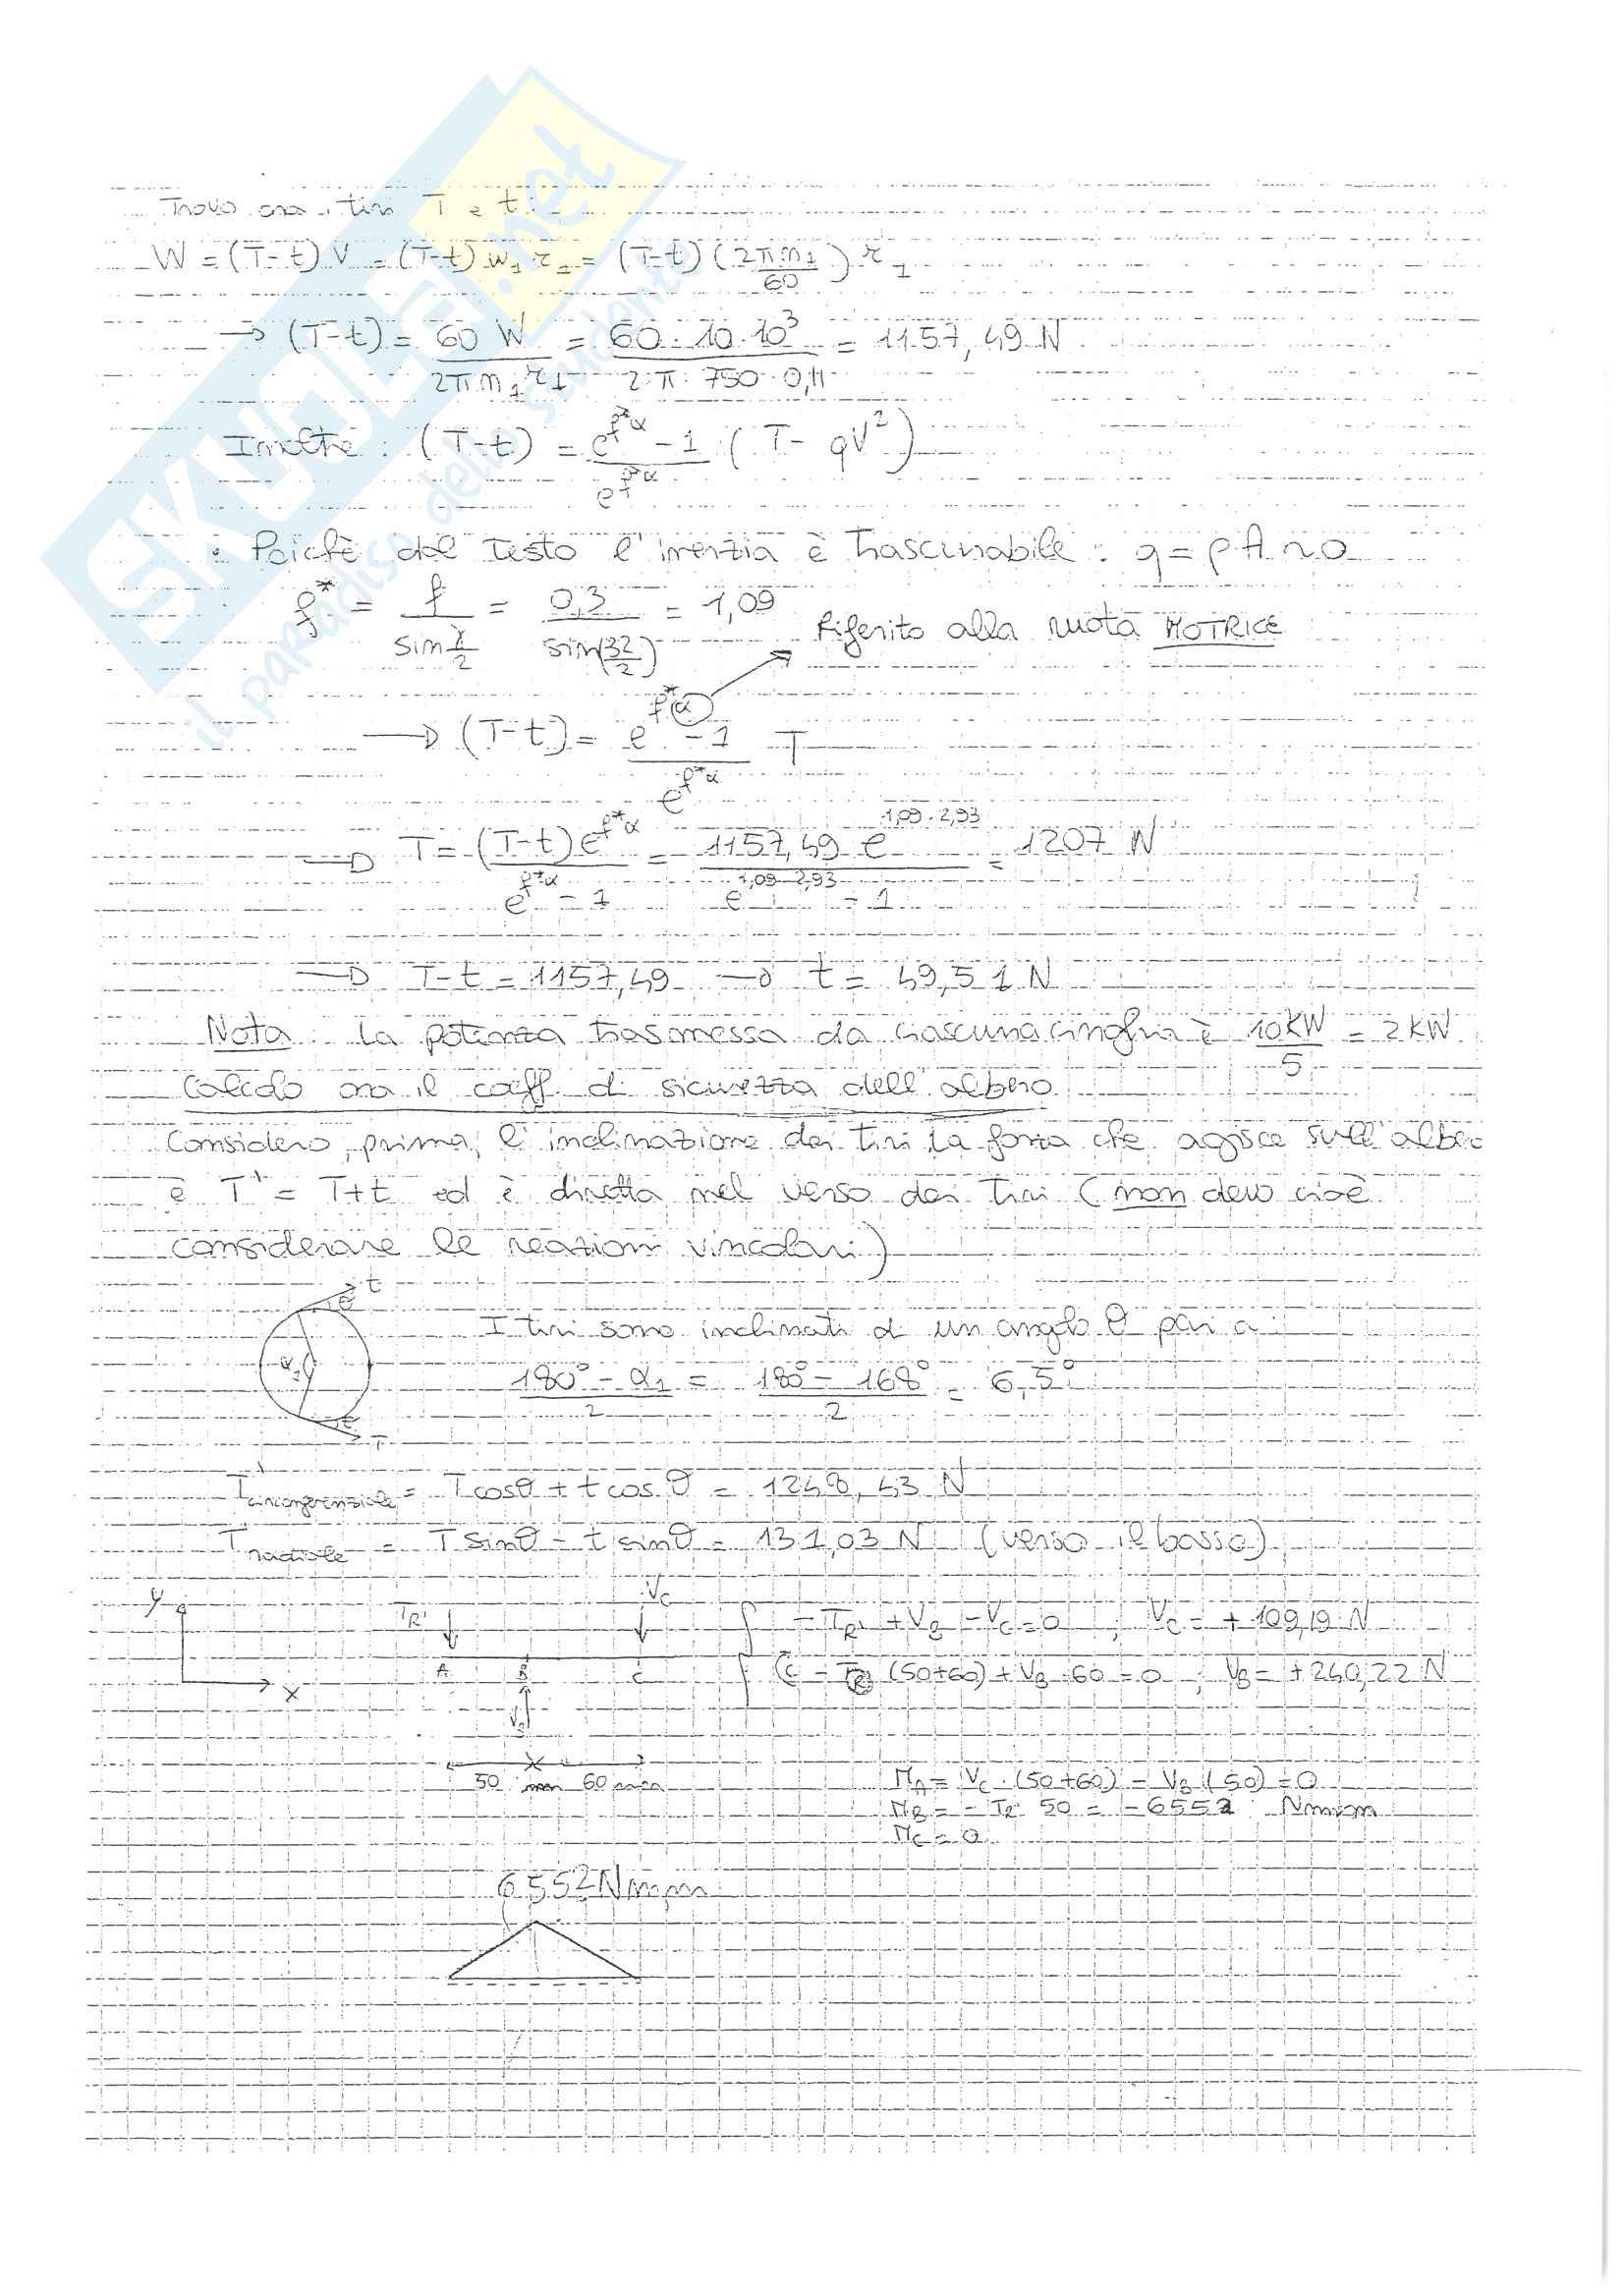 Trovo ora i tiri T e t:
W = (T-t) V = (T-t) w₁ r₁ = (T-t) (2πn₁/60) r₁
→ (T-t) = 60 W / 2πn₁r₁ = 60·10·10³ / 2·π·750·0,11 = 1157,49 N
Inoltre: (T-t) = (e^{f*α} - 1) / e^{f*α} (T - qV²)
• Poichè dal testo l'inerzia è trascurabile: q = ρA ≃ 0
f* = f / sin γ/2 = 0,3 / sin(32/2) = 1,09
Riferito alla ruota MOTRICE
→ (T-t) = (e^{f*α} - 1) / e^{f*α} T
→ T = (T-t) e^{f*α} / (e^{f*α} - 1) = 1157,49 e^{1,09·2,93} / (e^{1,09·2,93} - 1) = 1207 N
→ T-t = 1157,49 → t = 49,51 N
Nota: la potenza trasmessa da ciascuna cinghia è 10KW/5 = 2KW
Calcolo ora il coeff. di sicurezza dell'albero
Considero, prima, l'inclinazione dei tiri, la forza che agisce sull'albero
è T' = T+t ed è diretta nel verso dei tiri (non devo cioè
considerare le reazioni vincolari)
t
θ
α₁
θ
T
I tiri sono inclinati di un angolo θ pari a:
(180° - α₁) / 2 = (180° - 168°) / 2 = 6,5°
T' circonferenziale = T cosθ + t cosθ = 1248,43 N
T' radiale = T sinθ - t sinθ = 131,03 N (verso il basso)
y
x
TR'
VC
A
B
C
VB
50 mm 60 mm
- TR' + VB - VC = 0 ; VC = + 109,19 N
C - TR' (50+60) + VB·60 = 0 ; VB = + 240,22 N
MA = VC·(50+60) - VB·(50) = 0
MB = - TR' 50 = - 6552 Nmm
MC = 0
6552 Nmm
SKUOLA.net
il paradiso dello studente